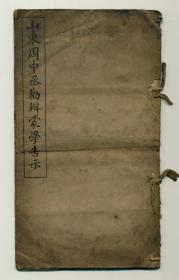 山東周中丞勸辦蒙學告示